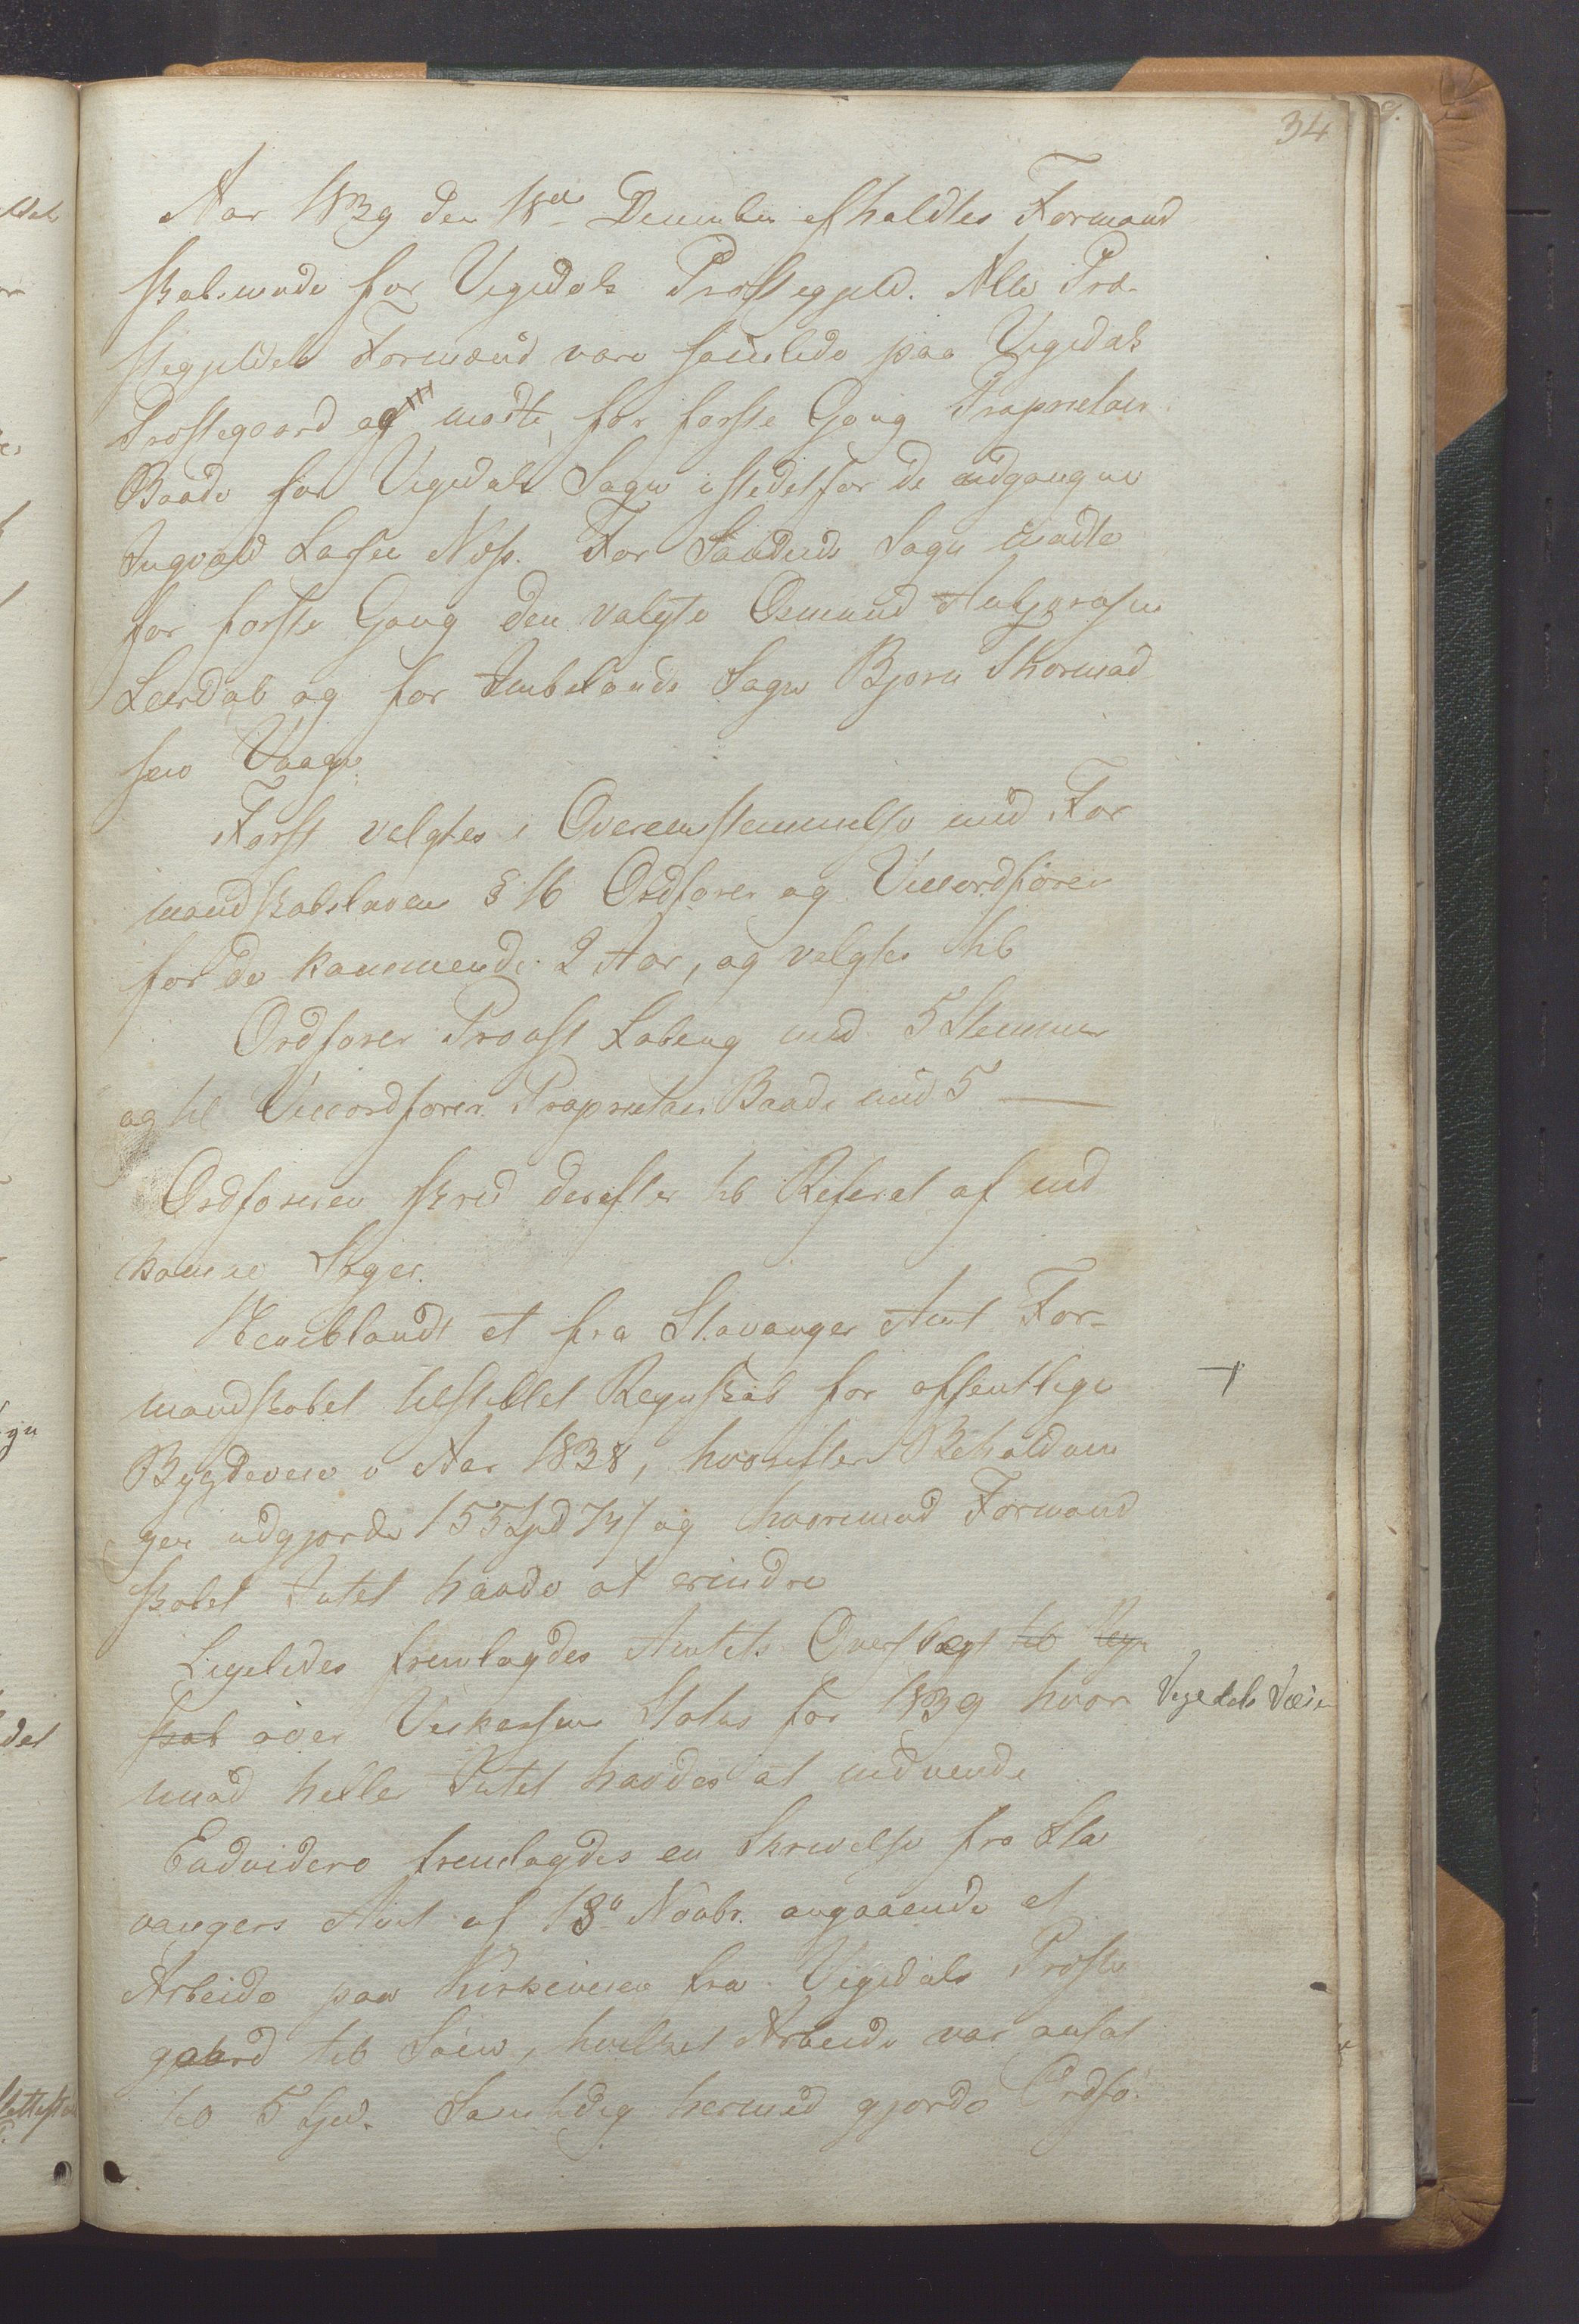 34
Aar 1839 den 18de December afholdtes Formand
skabsmøde for Vigedals Præstegjeld. Alle Præ-
stegjeldets Formænd vare samlede paa Vigedals
Præstegaard og mødte for første Gang Proprietair
Baade for Vigedals Sogn istedetfor de udgangne
Ingvald Larsen Næs. For Sandeids Sogn mødte
for første Gang den valgte Osmund Asbjørnsen
Leerdal og for Imbslands Sogn Bjørn Thormod
sen Vaage.
Først valgtes i Overeensstemmelse med For
mandskabsloven § 16 Ordfører og Viceordfører
for de kommende 2 Aar, og valgtes til
Ordfører Provst Laberg med 5 Stemmer
og til Viceordfører Proprietair Baade med 5 —
Ordføreren skred derefter til Referat af ind
komne Sager.
Heriblandt et fra Stavanger Amt For-
mandskabet tilstillet Regnskab for offentlige
Bygdeveie i Aar 1838, hvorefter Beholdnin
gen udgjorde 155 Spd 74 s og hvorimod Formand
skabet Intet havde at erindre
Ligeledes fremlagdes Amtets Overslag til Regn
skab over Veikassens Status for 1839 hvor
imod heller Intet havdes at indvende
Vigedals Veie
Endvidere fremlagdes en Skrivelse fra Sta
vangers Amt af 18de Novbr. angaaende et
Arbeide paa Kirkeveien fra Vigedals Præste
gaard til Søen, hvilket Arbeide var ansat
til 5 Spd. Samtidig hermed gjorde Ordfø